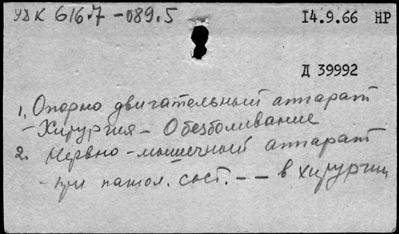 УДК 616.7-089.5
14.9.66 НР
Д 39992
1. Опорно двигательный аппарат
- Хирургия - Обезболивание
2. Нервно-мышечный аппарат
- при патол. сост. - - в хирургии